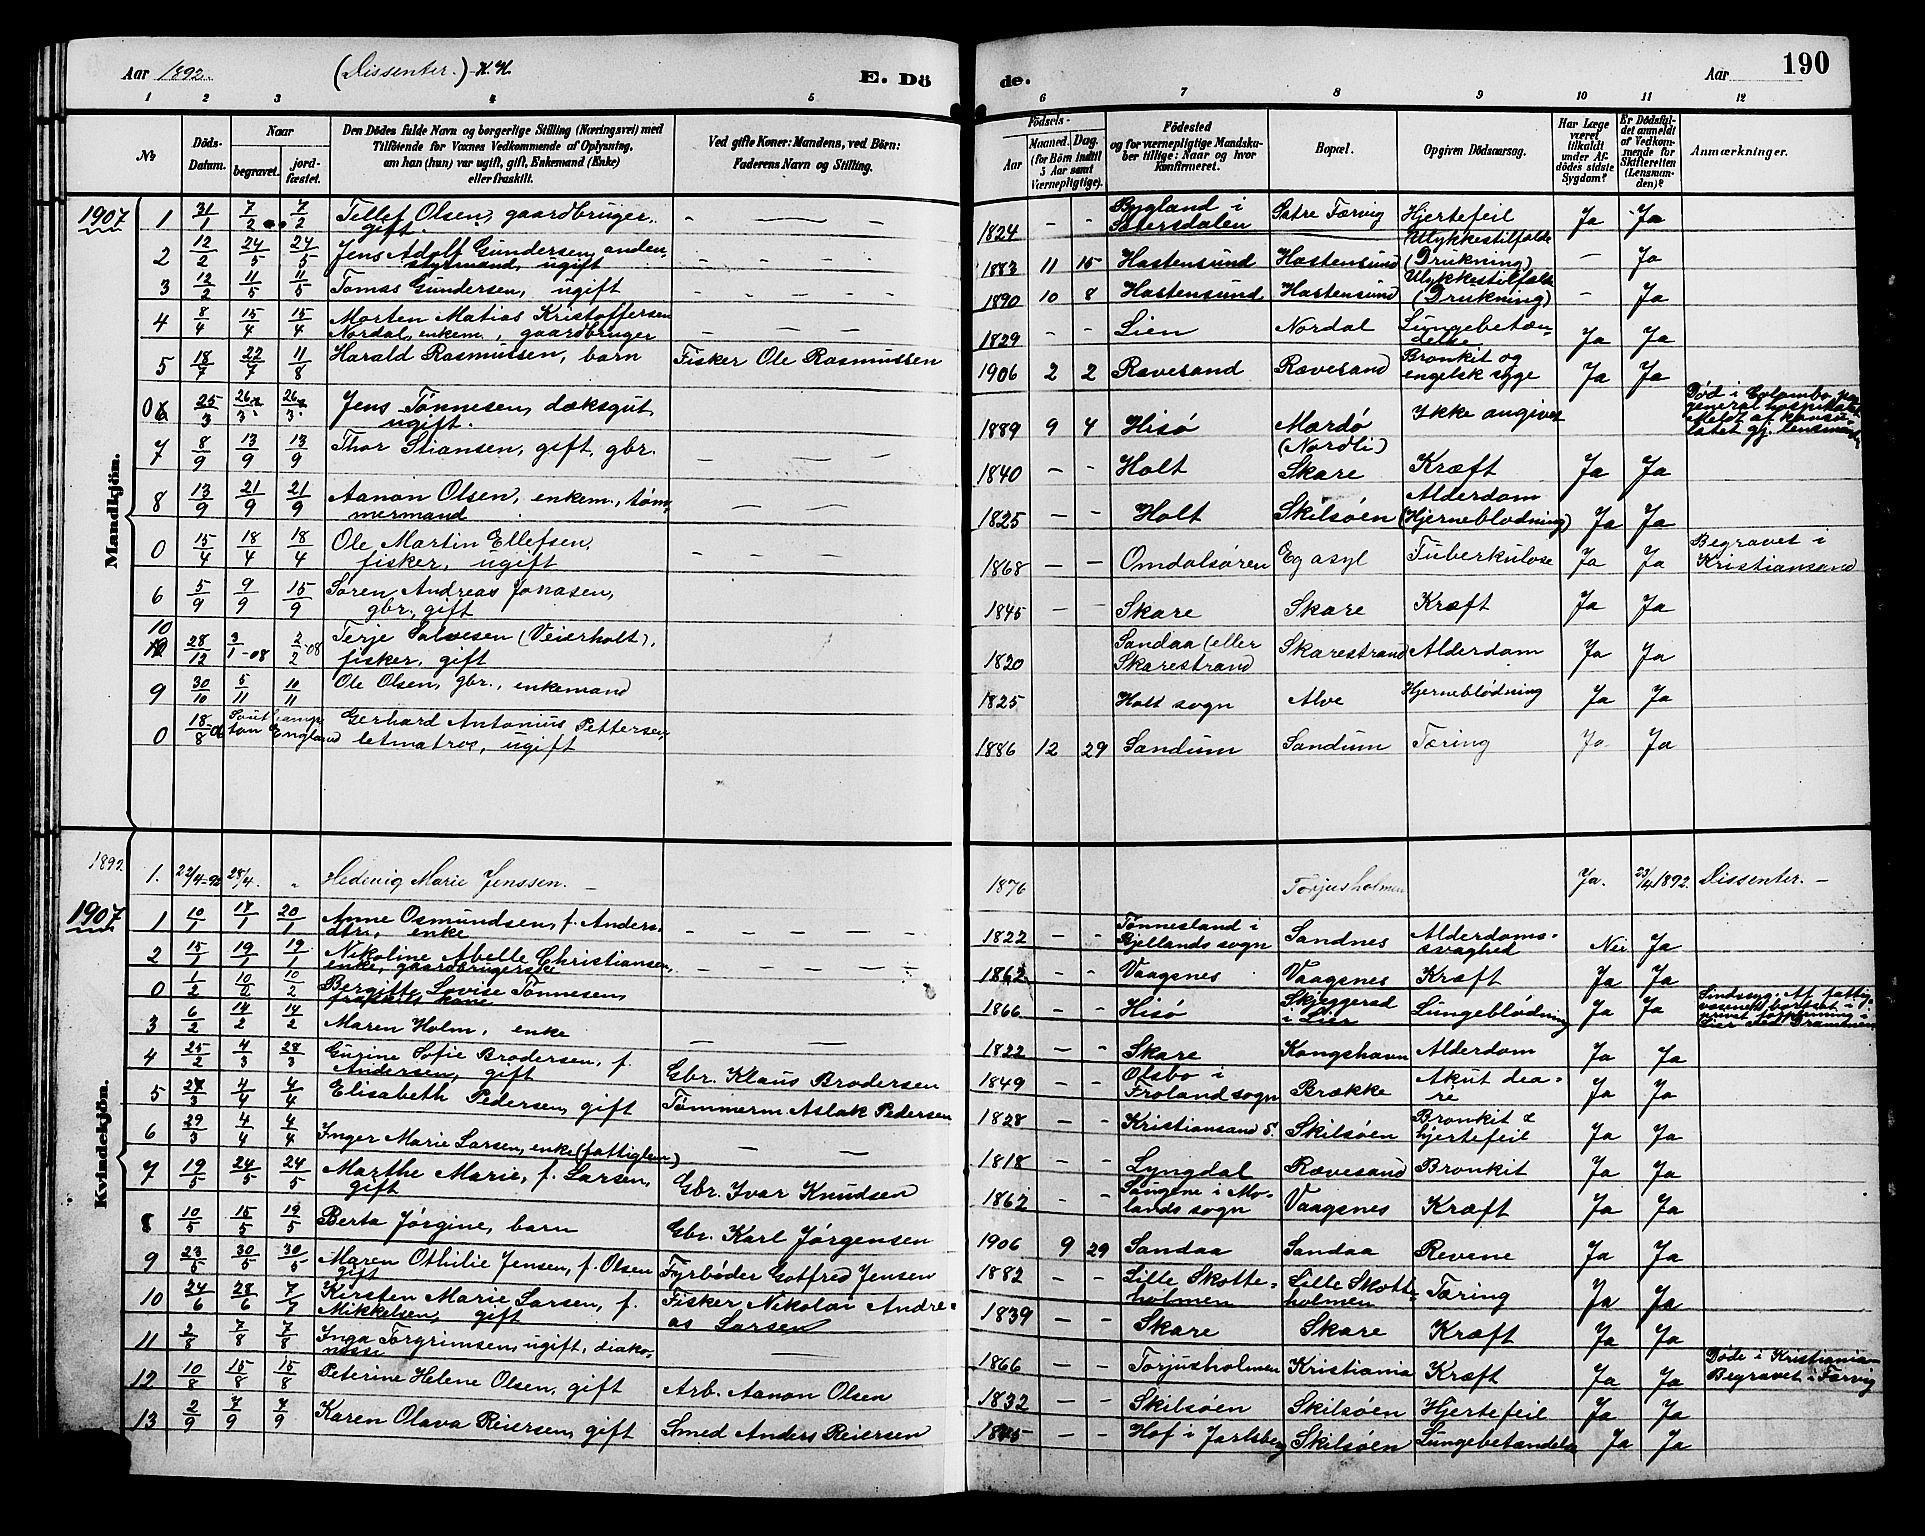 Aar 1892. (Dissenter.) H.H. E. Dö
de. Aar 190
1 2 3 4 5 6 7 8 9 10 11 12
№ Döds-Datum. Naar begravet. jordfæstet. Den Dödes fulde Navn og borgerlige Stilling (Næringsvei) med Tilföiende for Voxnes Vedkommende af Oplysning, om han (hun) var ugift, gift, Enkemand (Enke) eller fraskilt. Ved gifte Koner: Mandens, ved Börn: Faderens Navn og Stilling. Födsels- Aar Maaned. Dag. (for Börn indtil 5 Aar samt Værnepligtige). Födested og for værnepligtige Mandskaber tillige: Naar og hvor konfirmeret. Bopæl. Opgiven Dödsaarsag. Har Læge været tilkaldt under Afdödes sidste Sygdom? Er Dödsfaldet anmeldt af Vedkommende for Skifteretten (Lensmanden)? Anmærkninger.
Mandkjön.
1907 1 31/1 7/2 7/2 Tellef Olsen, gaardbruger, gift. - — - 1824 - - Bygland i Sætersdalen Satre Færvig Hjertefeil Ja Ja
2 12/2 24/5 24/5 Jens Adolf Gundersen, andenstyrmand, ugift - - - - 1883 11 15 Hastensund Hastensund Ulykkestilfælde (Drukning) - Ja
3 12/2 11/5 11/5 Tomas Gundersen, ugift - - - - 1890 10 8 Hastensund Hastensund Ulykkestilfælde (Drukning) - Ja
4 8/4 15/4 15/4 Morten Matias Kristoffersen Nordal, enkem., gaardbruger - - - - 1829 - - Lien Nordal Lungebetændelse Ja Ja
5 18/7 22/7 11/8 Harald Rasmussen, barn Fisker Ole Rasmussen 1906 2 2 Rævesand Rævesand Bronkit og engelsk syge Ja Ja
0 25/3 26/3 26/3 Jens Tönnesen, dæksgut, ugift. 1889 9 4 Hisö Mærdö (Nordli) Ikke angivet Död i Colombo, general hospitalet. Meldt af konsulatet gj. lensmanden
7 8/9 13/9 13/9 Thor Stiansen, gift, gbr. - - - 1840 - - Holt Skare Kræft Ja Ja
8 13/9 21/9 21/9 Aanon Olsen, enkem., tömmermand - - - 1825 - - Holt Skilsöen Alderdom (Hjerneblödning) Ja Ja
0 15/4 18/4 18/4 Ole Martin Ellefsen, fisker, ugift - - - - 1868 - - Omdalsören Eg asyl Tuberkulose Ja Ja Begravet i Kristiansand
6 5/9 9/9 15/9 Sören Andreas Jonasen, gbr., gift 1845 - - Skare Skare Kræft Ja Ja
10 28/12 3/1-08 2/2-08 Terje Salvesen (Veierholt), fisker, gift 1820 Sandaa (eller Skarestrand Skarestrand Alderdom Ja Ja
9 30/10 5/11 10/11 Ole Olsen, gbr., enkemand 1825 Holt sogn Alve Hjerneblödning Ja Ja
0 18/8 Southampton England Gerhard Antonius Pettersen, letmatros, ugift 1886 12 29 Sandum Sandum Tæring Ja Ja
Kvindekjön.
1892. 1. 22/4-92 28/4. " Hedevig Marie Jenssen. - 1876 Torjusholmen Ja. 23/4 1892. Dissenter. -
1907 1 10/1 17/1 20/1 Anne Osmundsen, f. Andersdtr., enke - - - - 1822 - - Tönnesland i Bjellands sogn Sandnes Alderdomssvaghed Nei Ja
2 15/1 19/1 19/1 Nikoline Abelle Christiansen, enke, gaardbrugerske - - - - 1862 - - Vaagsnes Vaagsnes Kræft Ja Ja
0 1/2 10/2 10/2 Bergitte Lovise Tönnesen, fraskilt kone 1866 - - Hisö Skjeggerud i Lier Lungeblödning Ja Ja
3 6/2 14/2 14/2 Maren Holm, enke - - 1822 - - Skare Kongshavn Alderdom Ja Ja
4 25/2 4/3 28/3 Gurine Sofie Brodersen, f. Andersen, gift Gbr. Klaus Brodersen 1849 - - Olsbo i Froland sogn Brække Akut deare Ja Ja
5 27/3 4/4 4/4 Elisabeth Pedersen, gift Tömmerm. Aslak Pedersen 1828 - - Kristiansand S. Skilsöen Bronkit & hjertefeil Ja Ja
6 29/3 4/4 4/4 Inger Marie Larsen, enke (fattiglem) - - 1818 - - Lyngdal Rævesand Bronkit Ja Ja
7 19/5 24/5 24/5 Marthe Marie, f. Larsen, gift Gbr. Ivar Knudsen 1862 - - Saugene i Molands sogn Vaagsnes Kræft Ja Ja
8 10/5 15/5 19/5 Berta Jörgine, barn Gbr. Karl Jörgensen 1906 9 29 Sandaa Sandaa Revene Ja Ja
9 23/5 30/5 30/5 Maren Othilie Jensen, f. Olsen gift Fyrböder Gotfred Jensen 1882 - - Lille Skotteholmen Lille Skotteholmen Tæring Ja Ja
10 24/6 28/6 7/7 Kirsten Marie Larsen, f. Mikkelsen, gift Fisker Nikolai Andreas Larsen 1839 Skare Skare Kræft Ja Ja
11 2/8 7/8 7/8 Inga Torgrimsen, ugift, diakonesse 1866 - - Torjusholmen Kristiania Kræft Ja Ja Döde i Kristiania Begravet i Færvig
12 10/8 15/8 15/8 Peterine Helene Olsen, gift Arb. Aanon Olsen 1832 - - Skilsöen Skilsöen Hjertefeil Ja Ja
13 2/9 7/9 7/9 Karen Olava Reiersen, gift Smed Anders Reiersen - - Hof i Jarlsberg Skilsöen Lungebetændelse Ja Ja